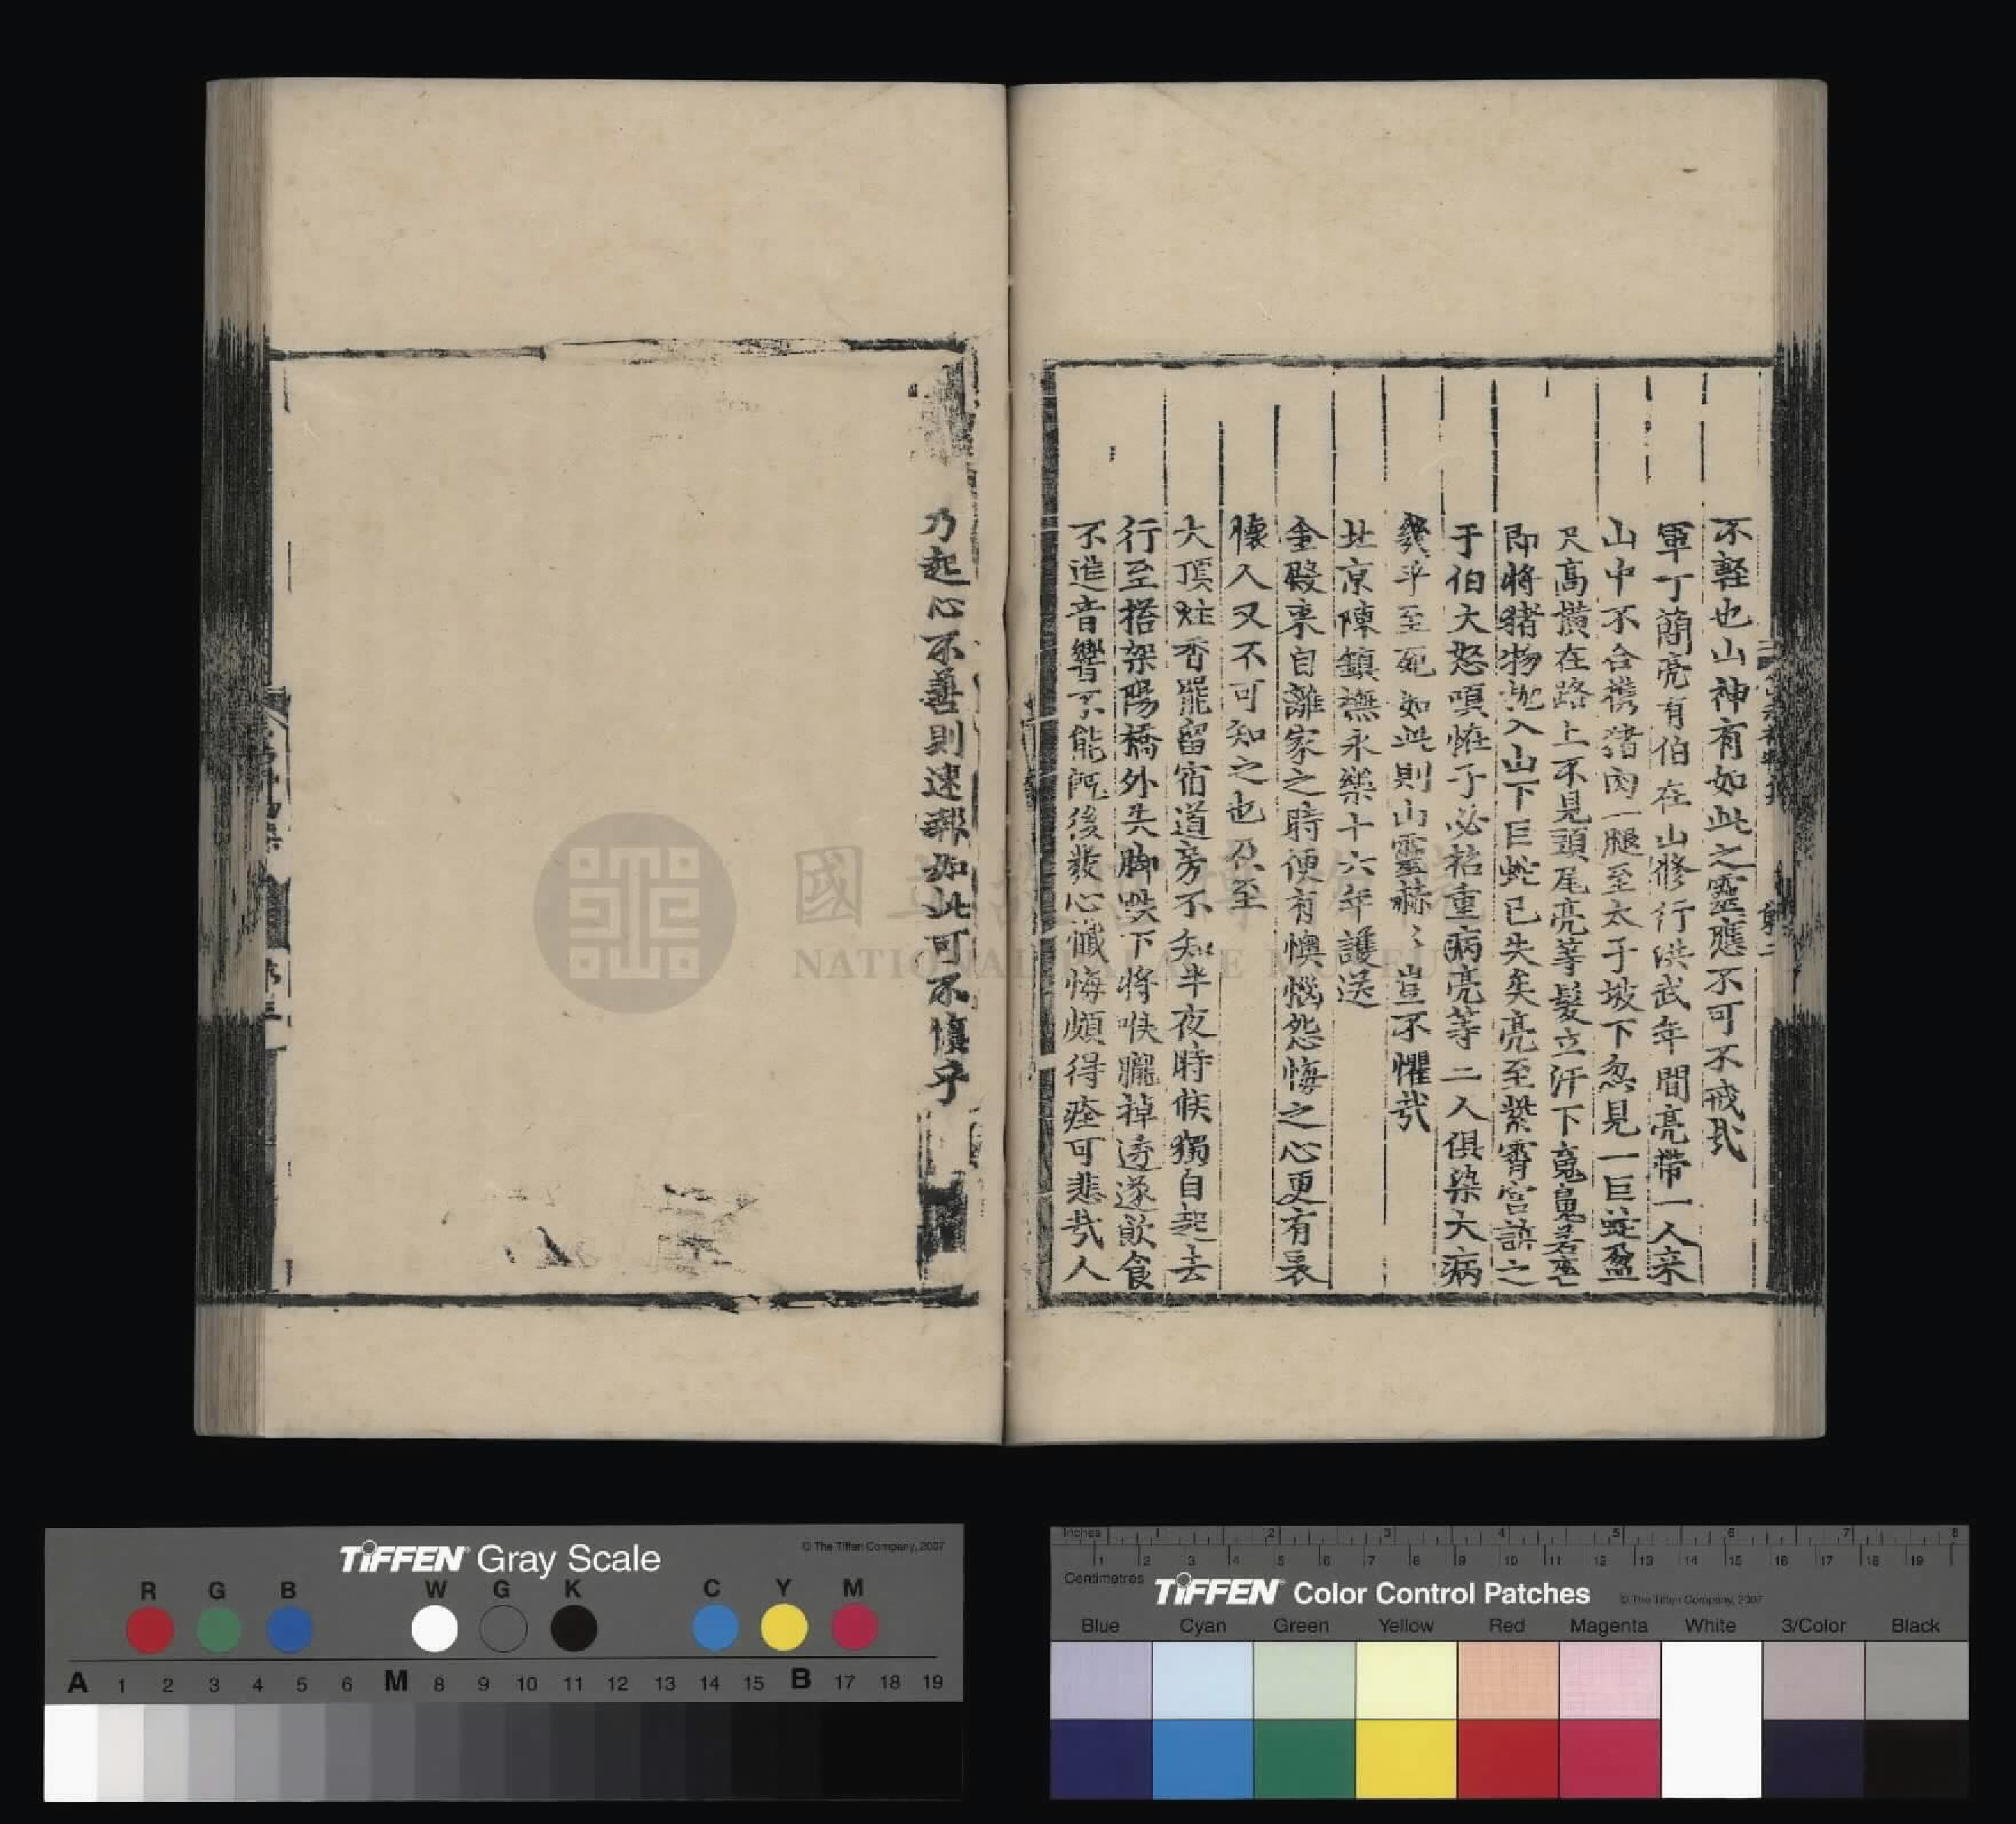 不輕也山神有如此之靈應不可不戒㢤
軍丁蕳亮有伯在山修行洪武年間亮帶一人来
山中不合携猪肉一腿至太子坡下忽見一巨蛇盈
尺高横在路上不見頭尾亮等髮立汗下䰟
即将猪物抛入山下巨蛇已失矣亮至紫霄宫訴之
于伯大怒嗔恠子必招重病亮等二人俱染大病
幾乎至死如此則山靈赫〻豈不懼㢤
北京陳鎮撫永樂十六年護送
金殿来自離家之時便有懊惱怨悔之心更有
人又不可知之也及至
大頂炷香罷留宿道房不知半夜時候獨自起去
行至搭架陽橋外失脚跌下将喉嚨掉透遂飲食
不進音響不能阨後發心懴悔頗得痊可悲㢤人
乃起心不善則速報如此可不慎乎
國立故宮博物院
NATIONAL PALACE MUSEUM
TIFFEN Gray Scale
© The Tiffen Company, 2007
R G B W G K C Y M
A 1 2 3 4 5 6 M 8 9 10 11 12 13 14 15 B 17 18 19
Inches 1 2 3 4 5 6 7 8
1 2 3 4 5 6 7 8 9 10 11 12 13 14 15 16 17 18 19
Centimetres
TIFFEN Color Control Patches
© The Tiffen Company, 2007
Blue Cyan Green Yellow Red Magenta White 3/Color Black